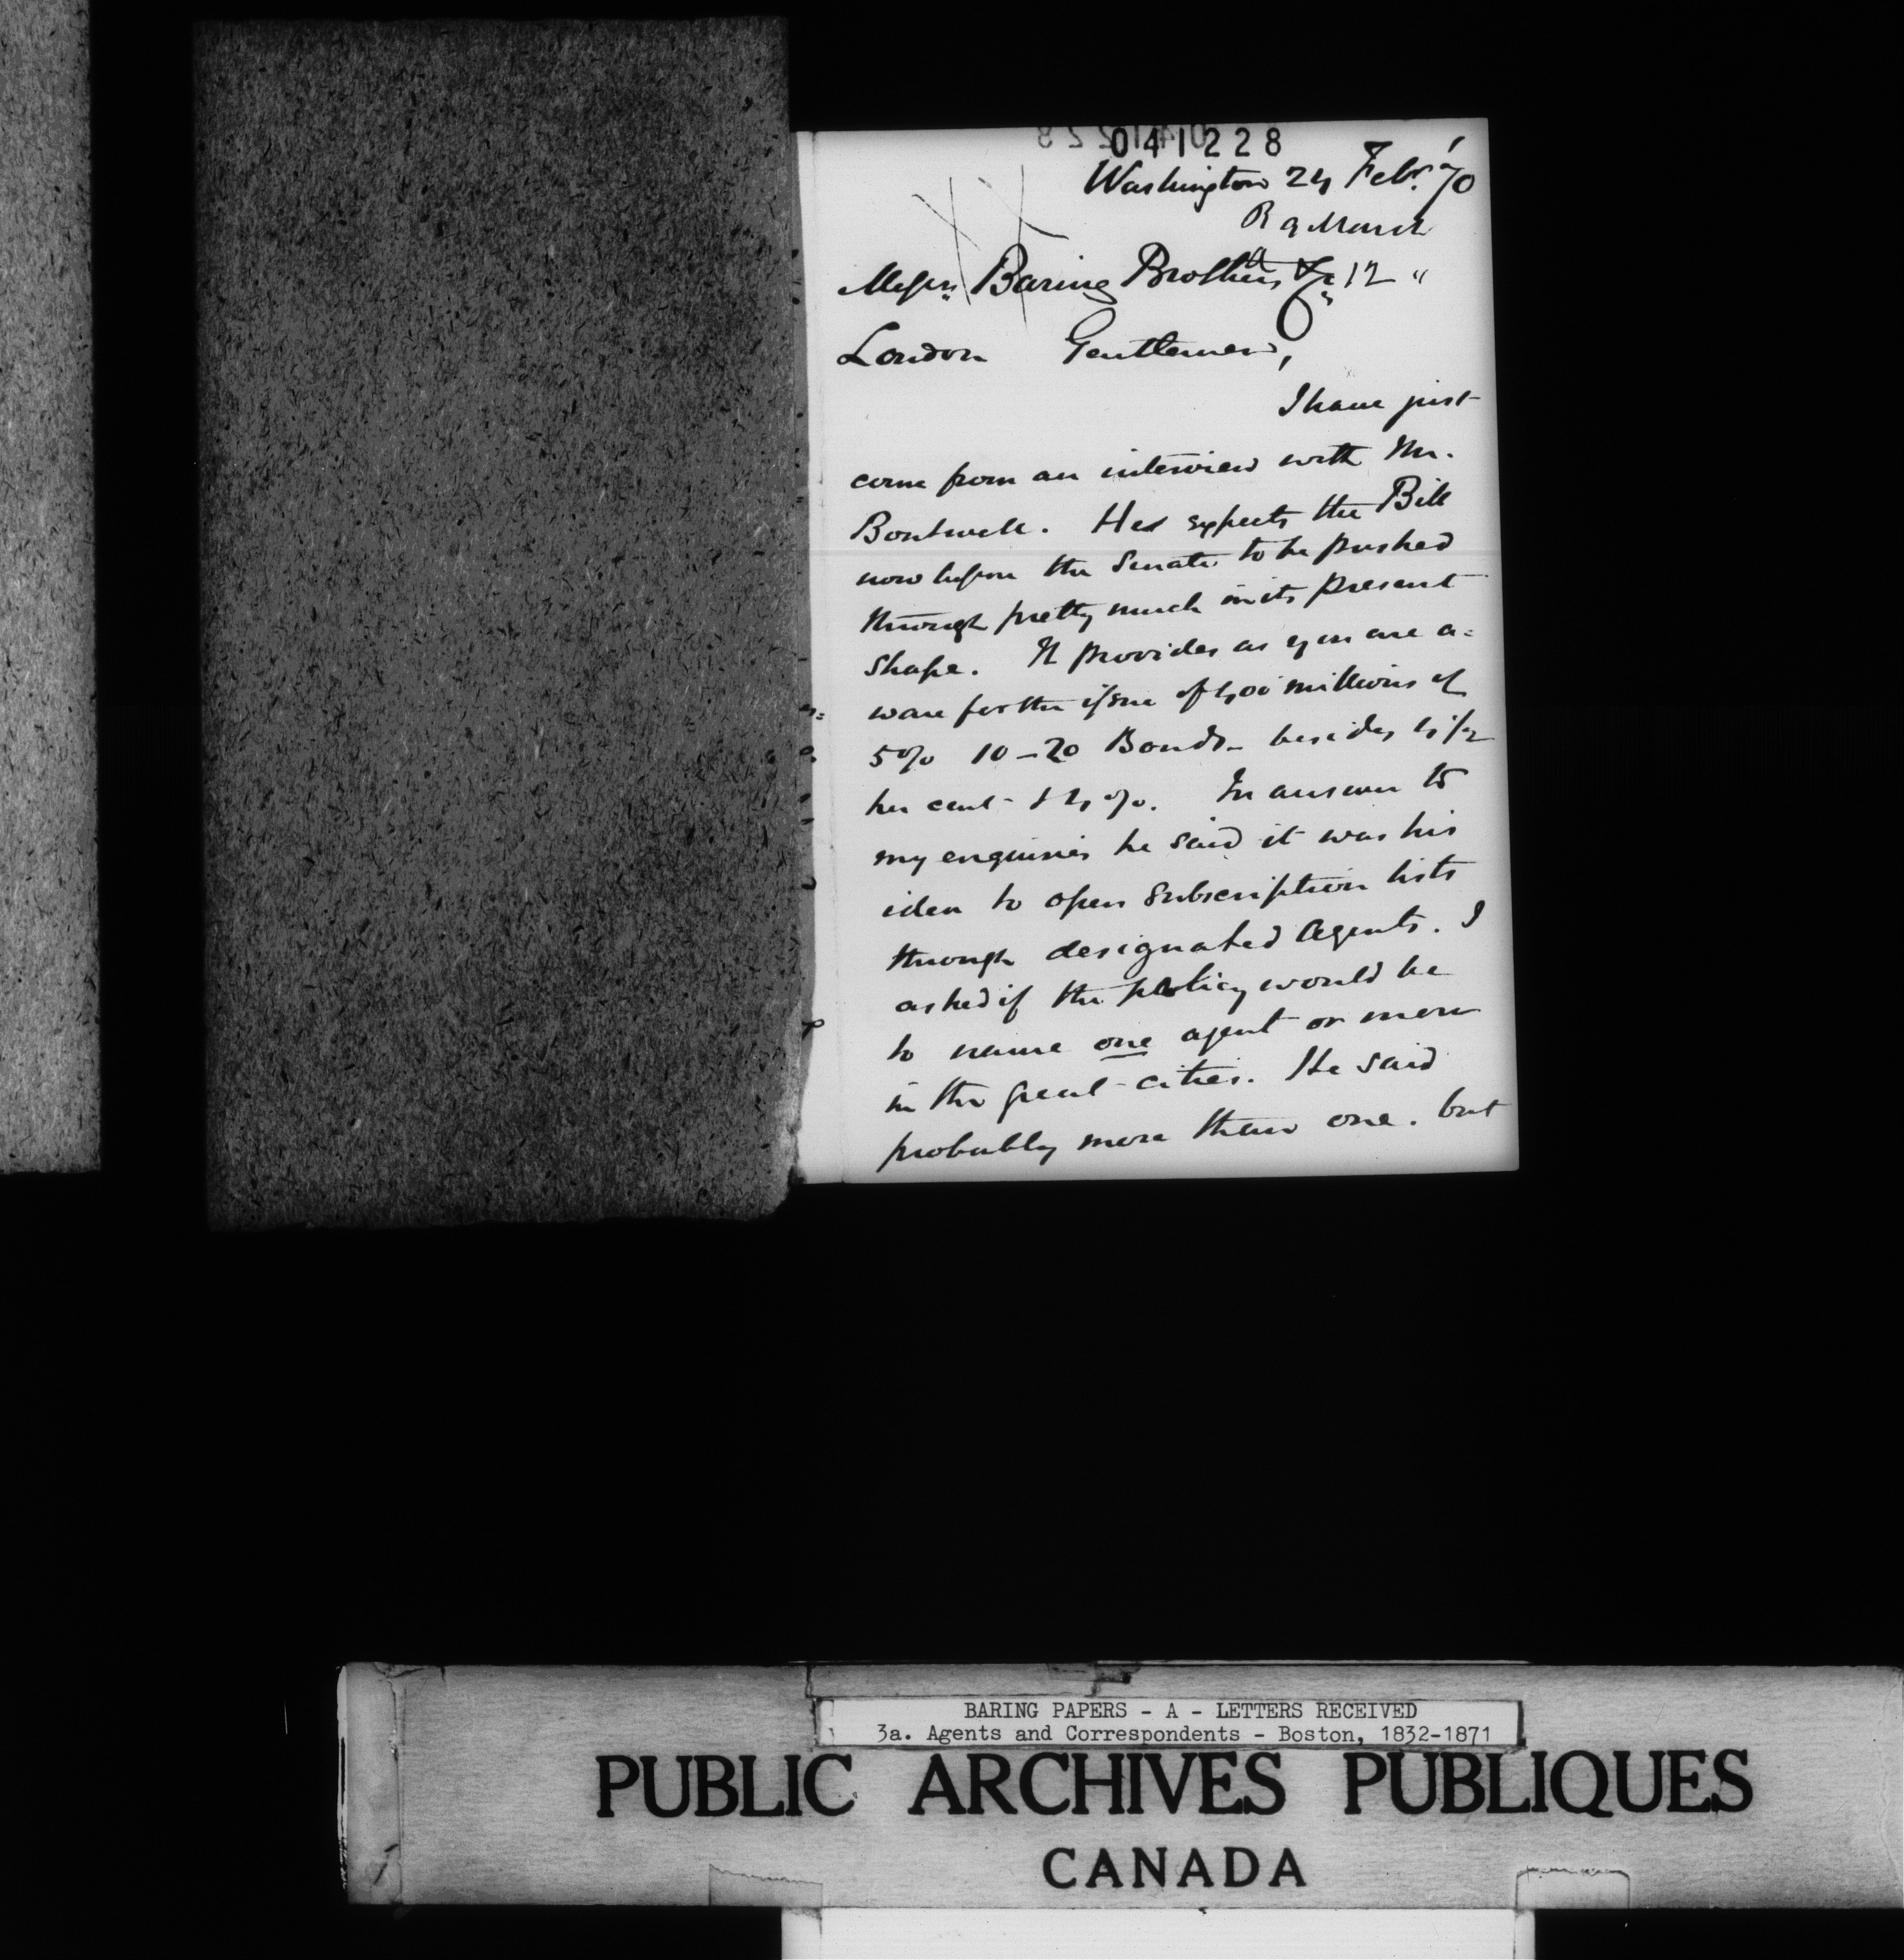 041228
Washington 24 Febr. '70
R 9 March
A 12 "
Messrs Baring Brothers & Co
London Gentlemen,
I have just
come from an interview with Mr.
Boutwell. He expects the Bill
now before the Senate to be pushed
through pretty much in its present
shape. It provides as you are a=
ware for the issue of 400 millions of
5% 10-20 Bonds - besides 4 1/2
per cent & 4%. In answer to
my enquiries he said it was his
idea to open subscription lists
through designated Agents. I
asked if the policy would be
to name one agent or more
in the great cities. He said
probably more than one. but
BARING PAPERS - A - LETTERS RECEIVED
3a. Agents and Correspondents - Boston, 1832-1871
PUBLIC ARCHIVES PUBLIQUES
CANADA